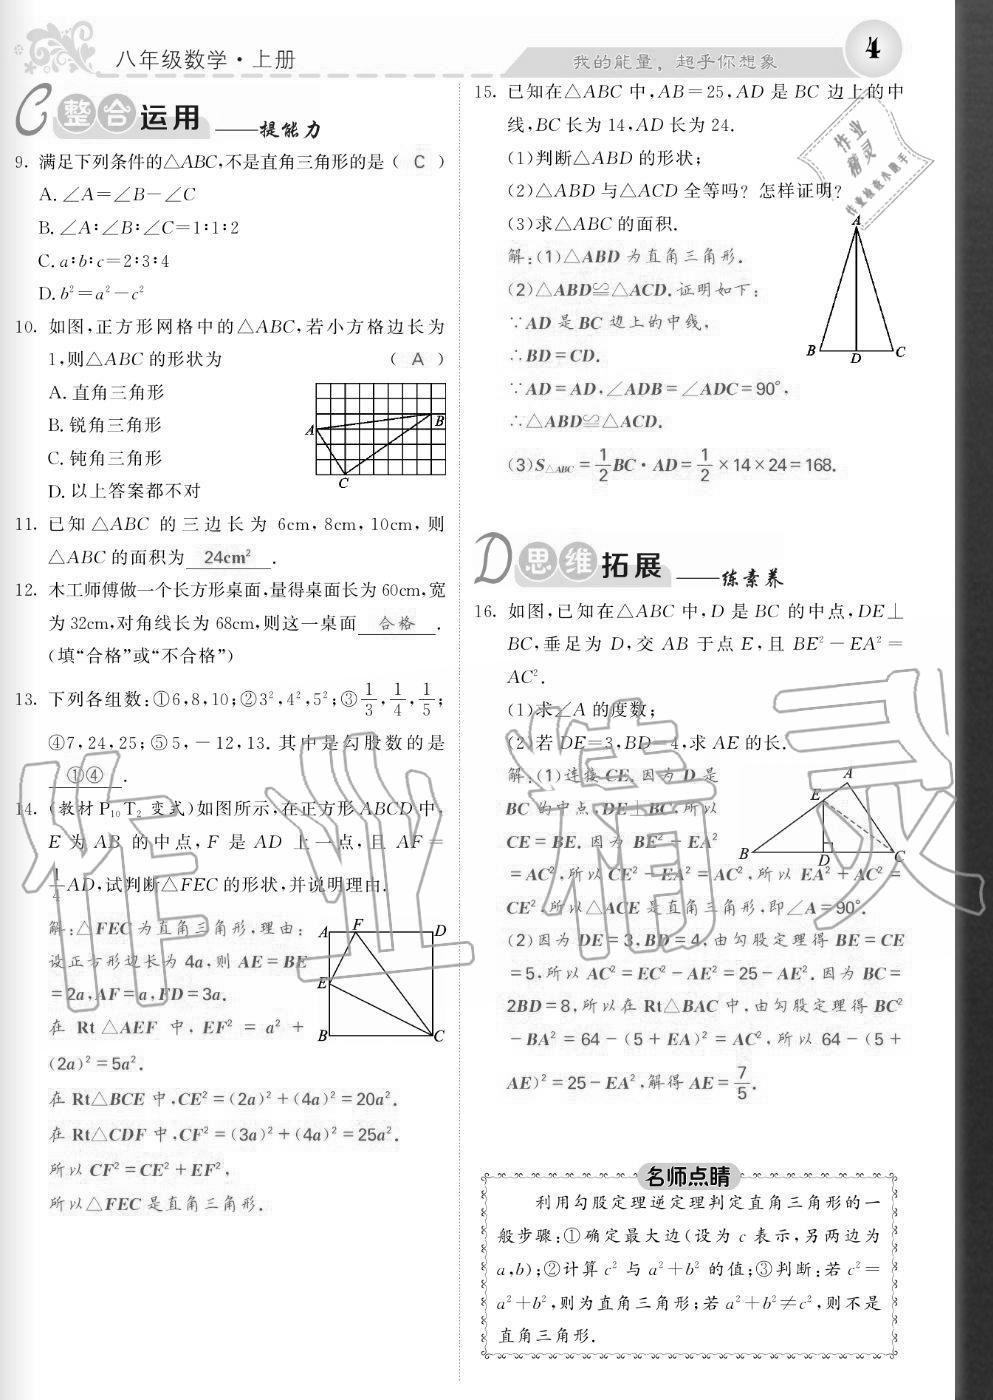 八年级数学·上册
我的能量，超乎你想象
4
C 整合运用 ——提能力
9. 满足下列条件的△ABC,不是直角三角形的是（ C ）
A. ∠A=∠B-∠C
B. ∠A∶∠B∶∠C=1∶1∶2
C. a∶b∶c=2∶3∶4
D. b²=a²-c²
10. 如图,正方形网格中的△ABC,若小方格边长为
1,则△ABC 的形状为 （ A ）
A. 直角三角形
B. 锐角三角形
C. 钝角三角形
D. 以上答案都不对
A
B
C
11. 已知△ABC 的三边长为 6cm, 8cm, 10cm, 则
△ABC 的面积为 24cm² .
12. 木工师傅做一个长方形桌面,量得桌面长为 60cm,宽
为 32cm,对角线长为 68cm,则这一桌面 合格 .
(填“合格”或“不合格”)
13. 下列各组数:①6,8,10;②3²,4²,5²;③1/3,1/4,1/5;
④7,24,25;⑤5,-12,13. 其中是勾股数的是
①④ .
14. (教材 P₁₀ T₂ 变式)如图所示,在正方形 ABCD 中,
E 为 AB 的中点,F 是 AD 上一点,且 AF=
1/4 AD,试判断△FEC 的形状,并说明理由.
解:△FEC 为直角三角形,理由:
设正方形边长为 4a,则 AE=BE
=2a,AF=a,FD=3a.
在 Rt△AEF 中, EF²=a²+
(2a)²=5a².
在 Rt△BCE 中,CE²=(2a)²+(4a)²=20a².
在 Rt△CDF 中,CF²=(3a)²+(4a)²=25a².
所以 CF²=CE²+EF²,
所以△FEC 是直角三角形.
A F D
E
B C
15. 已知在△ABC 中,AB=25,AD 是 BC 边上的中
线,BC 长为 14,AD 长为 24.
(1)判断△ABD 的形状;
(2)△ABD 与△ACD 全等吗？怎样证明？
(3)求△ABC 的面积.
解:(1)△ABD 为直角三角形.
(2)△ABD≌△ACD.证明如下:
∵AD 是 BC 边上的中线,
∴BD=CD.
∵AD=AD,∠ADB=∠ADC=90°,
∴△ABD≌△ACD.
(3)S△ABC=1/2 BC·AD=1/2×14×24=168.
A
B D C
作业
精灵
作业检查小助手
D 思维拓展 ——练素养
16. 如图,已知在△ABC 中,D 是 BC 的中点,DE⊥
BC,垂足为 D,交 AB 于点 E,且 BE²-EA²=
AC².
(1)求∠A 的度数;
(2)若 DE=3,BD=4,求 AE 的长.
解:(1)连接 CE.因为 D 是
BC 的中点,DE⊥BC,所以
CE=BE.因为 BE²-EA²
=AC²,所以 CE²-EA²=AC²,所以 EA²+AC²=
CE².所以△ACE 是直角三角形,即∠A=90°.
(2)因为 DE=3,BD=4,由勾股定理得 BE=CE
=5,所以 AC²=EC²-AE²=25-AE².因为 BC=
2BD=8,所以在 Rt△BAC 中,由勾股定理得 BC²
-BA²=64-(5+EA)²=AC²,所以 64-(5+
AE)²=25-EA²,解得 AE=7/5.
A
E
B D C
名师点睛
利用勾股定理逆定理判定直角三角形的一
般步骤:①确定最大边(设为 c 表示,另两边为
a,b);②计算 c² 与 a²+b² 的值;③判断:若 c²=
a²+b²,则为直角三角形;若 a²+b²≠c²,则不是
直角三角形.
作业精灵